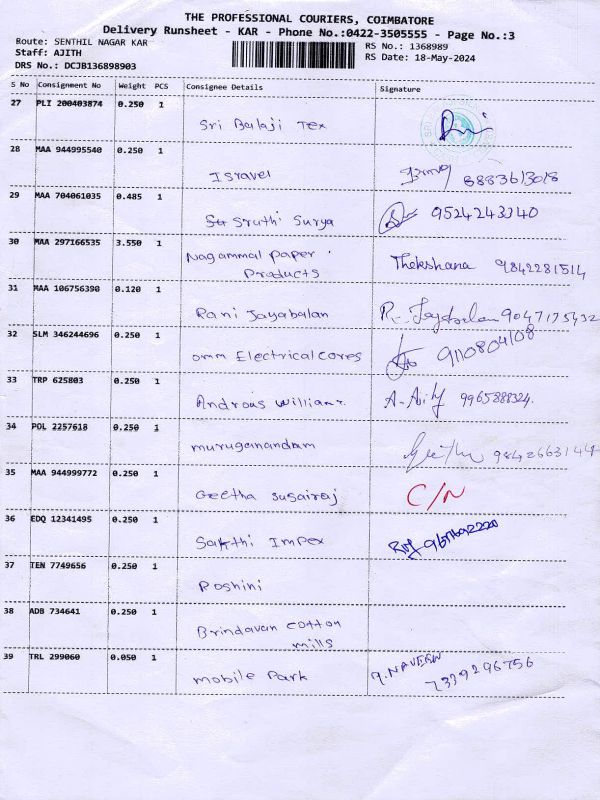 THE PROFESSIONAL COURIERS, COIMBATORE
Delivery Runsheet - KAR - Phone No.:0422-3505555 - Page No.:3
Route: SENTHIL NAGAR KAR RS No.: 1368989
Staff: AJITH RS Date: 18-May-2024
DRS No.: DCJB136898903
S No Consignment No Weight PCS Consignee Details Signature
27 PLI 200403874 0.250 1
Sri Balaji Tex
28 MAA 944995540 0.250 1
Isravel 8883613018
29 MAA 704061035 0.485 1
Sruthi Surya 9524243340
30 MAA 297166535 3.550 1 Nagammal Paper
Products Thekshana 9842281514
31 MAA 106756390 0.120 1
Rani Jayabalan 9047175432
32 SLM 346244696 0.250 1
omm Electricalcores 9110804108
33 TRP 625803 0.250 1
Androas william. 9965888324.
34 POL 2257618 0.250 1
muruganandam 9842663144
35 MAA 944999772 0.250 1
Geetha Susairaj C/N
36 EDQ 12341495 0.250 1
Sakthi Impex
37 TEN 7749656 0.250 1
Roshini
38 ADB 734641 0.250 1
Brindavan cotton
mills
39 TRL 299060 0.050 1
mobile Park NAVEEN
7339296756